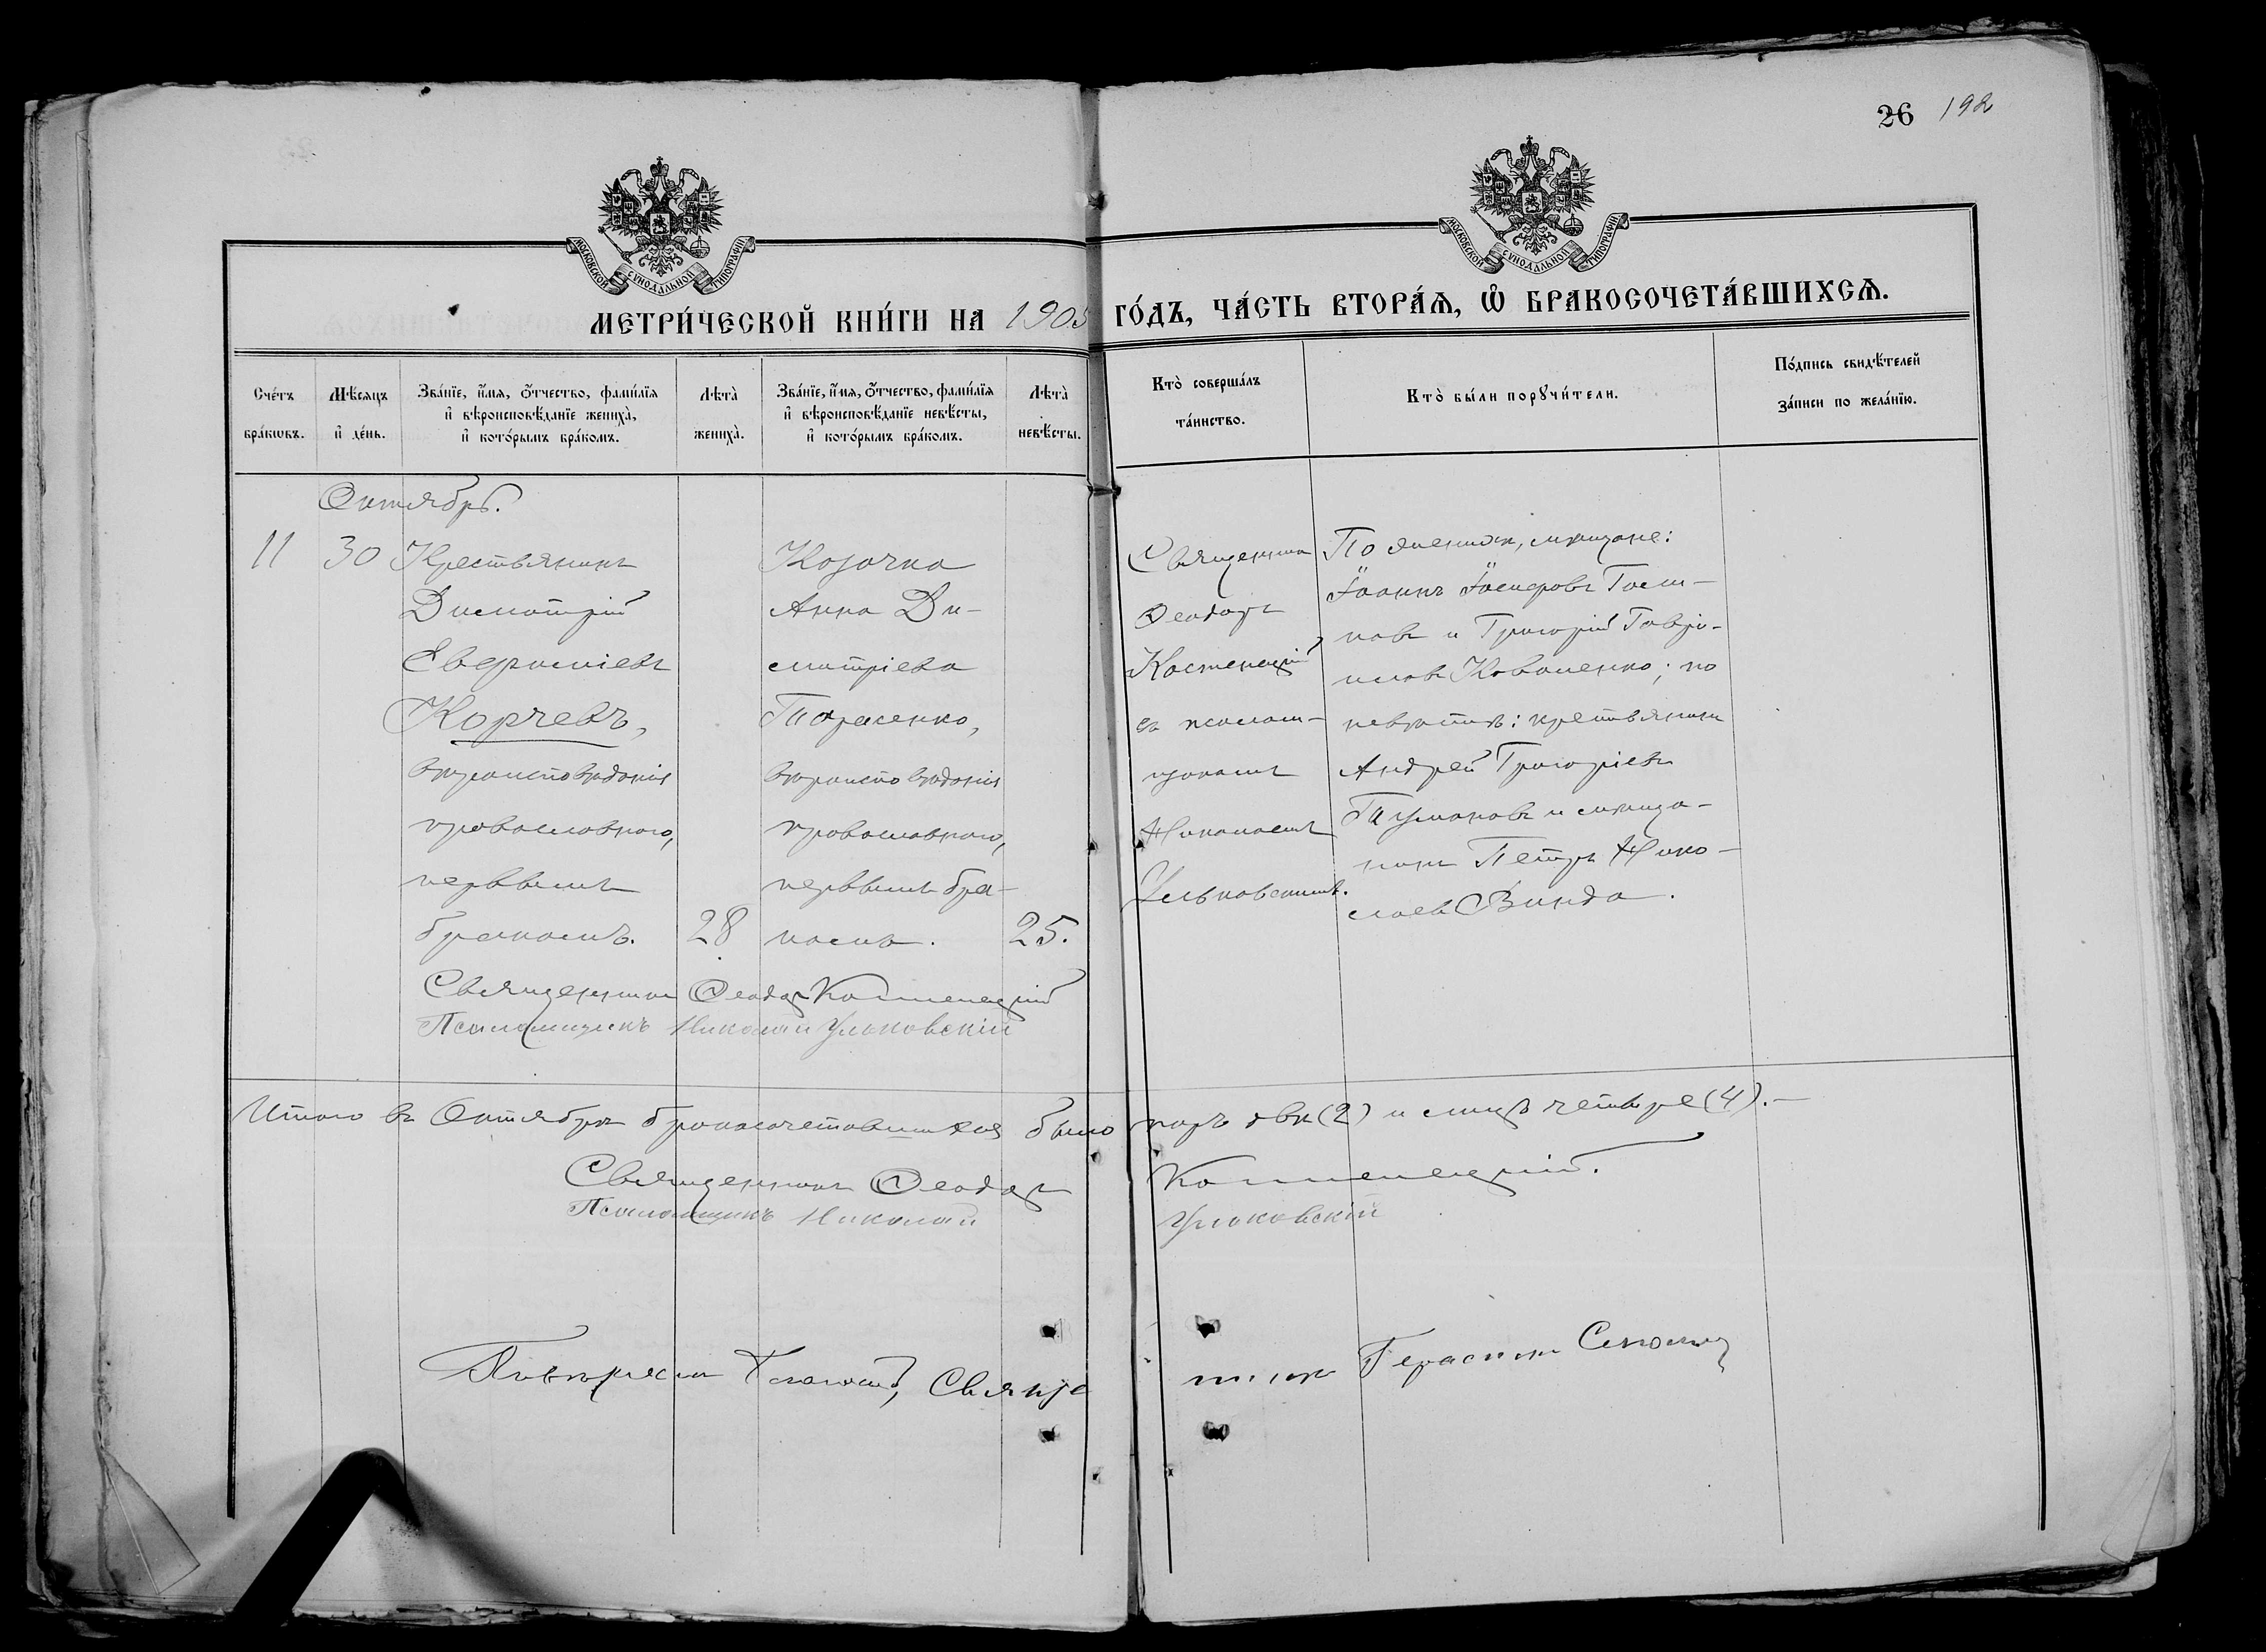 26 192
МОСКОВСКОЙ СѴНОДАЛЬНОЙ ТИПОГРАФІИ
МОСКОВСКОЙ СѴНОДАЛЬНОЙ ТИПОГРАФІИ
МЕТРИ́ЧЕСКОЙ КНИ́ГИ НА 1905 ГО́ДЪ, ЧА́СТЬ ВТОРА́Ѧ, Ѡ҆ БРАКОСОЧЕТА́ВШИХСѦ.
Сче́тъ бра́кѡвъ.
Мѣ́сяцъ и҆ де́нь.
Зва́нїе, и҆́мя, ѻ҆́тчество, фами́лїя и҆ вѣроисповѣ́данїе жениха̀, и҆ кото́рымъ бра́комъ.
Лѣта̀ жениха̀.
Зва́нїе, и҆́мя, ѻ҆́тчество, фами́лїя и҆ вѣроисповѣ́данїе невѣ́сты, и҆ кото́рымъ бра́комъ.
Лѣта̀ невѣ́сты.
Кто̀ соверша́лъ та́инство.
Кто̀ бы́ли порꙋчи́тели.
По́дпись свидѣ́телей за́писи по жела́нїю.
Октябрь.
11 30
Крестьянинъ
Димитрій
Евфиміевъ
Корчевъ,
вѣроисповѣданія
православнаго,
первымъ
бракомъ. 28
Козачка
Анна Ди-
митріева
Тарасенко,
вѣроисповѣданія
православнаго,
первымъ бра-
комъ. 25.
Священникъ
Ѳеодоръ
Костенецкій
съ псалом-
щикомъ
Николаемъ
Ульковскимъ.
По женихѣ, мѣщане:
Іоаннъ Іосифовъ
и Григорій Гаврі-
иловъ Коваленко; по
невѣстѣ: крестьянинъ
Андрей Григоріевъ
Тумановъ и мѣща-
нинъ Петръ Нико-
лаевъ Винда.
Священникъ Ѳеодоръ Костенецкій
Псаломщикъ Николай Ульковскій
Итого въ Октябрѣ бракосочетавшихся было паръ двѣ (2) и лицъ четыре (4).—
Священникъ Ѳеодоръ Костенецкій.
Псаломщикъ Николай Ульковскій
Герасимъ